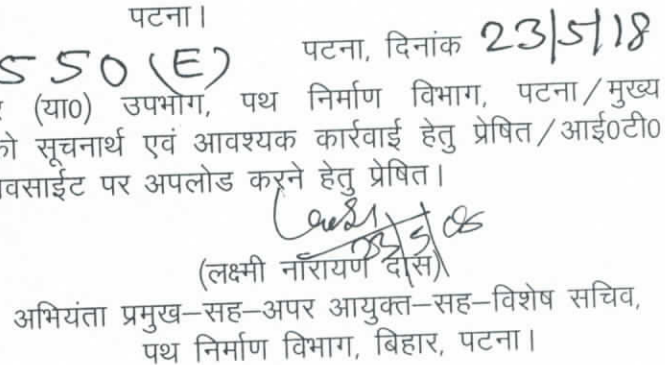 पटना।
550 (E) पटना, दिनांक 23/5/18
(या0) उपभाग, पथ निर्माण विभाग, पटना/मुख्य
को सूचनार्थ एवं आवश्यक कार्रवाई हेतु प्रेषित/आई0टी0
वेवसाईट पर अपलोड करने हेतु प्रेषित।
(लक्ष्मी नारायण दास)
अभियंता प्रमुख–सह–अपर आयुक्त–सह–विशेष सचिव,
पथ निर्माण विभाग, बिहार, पटना।